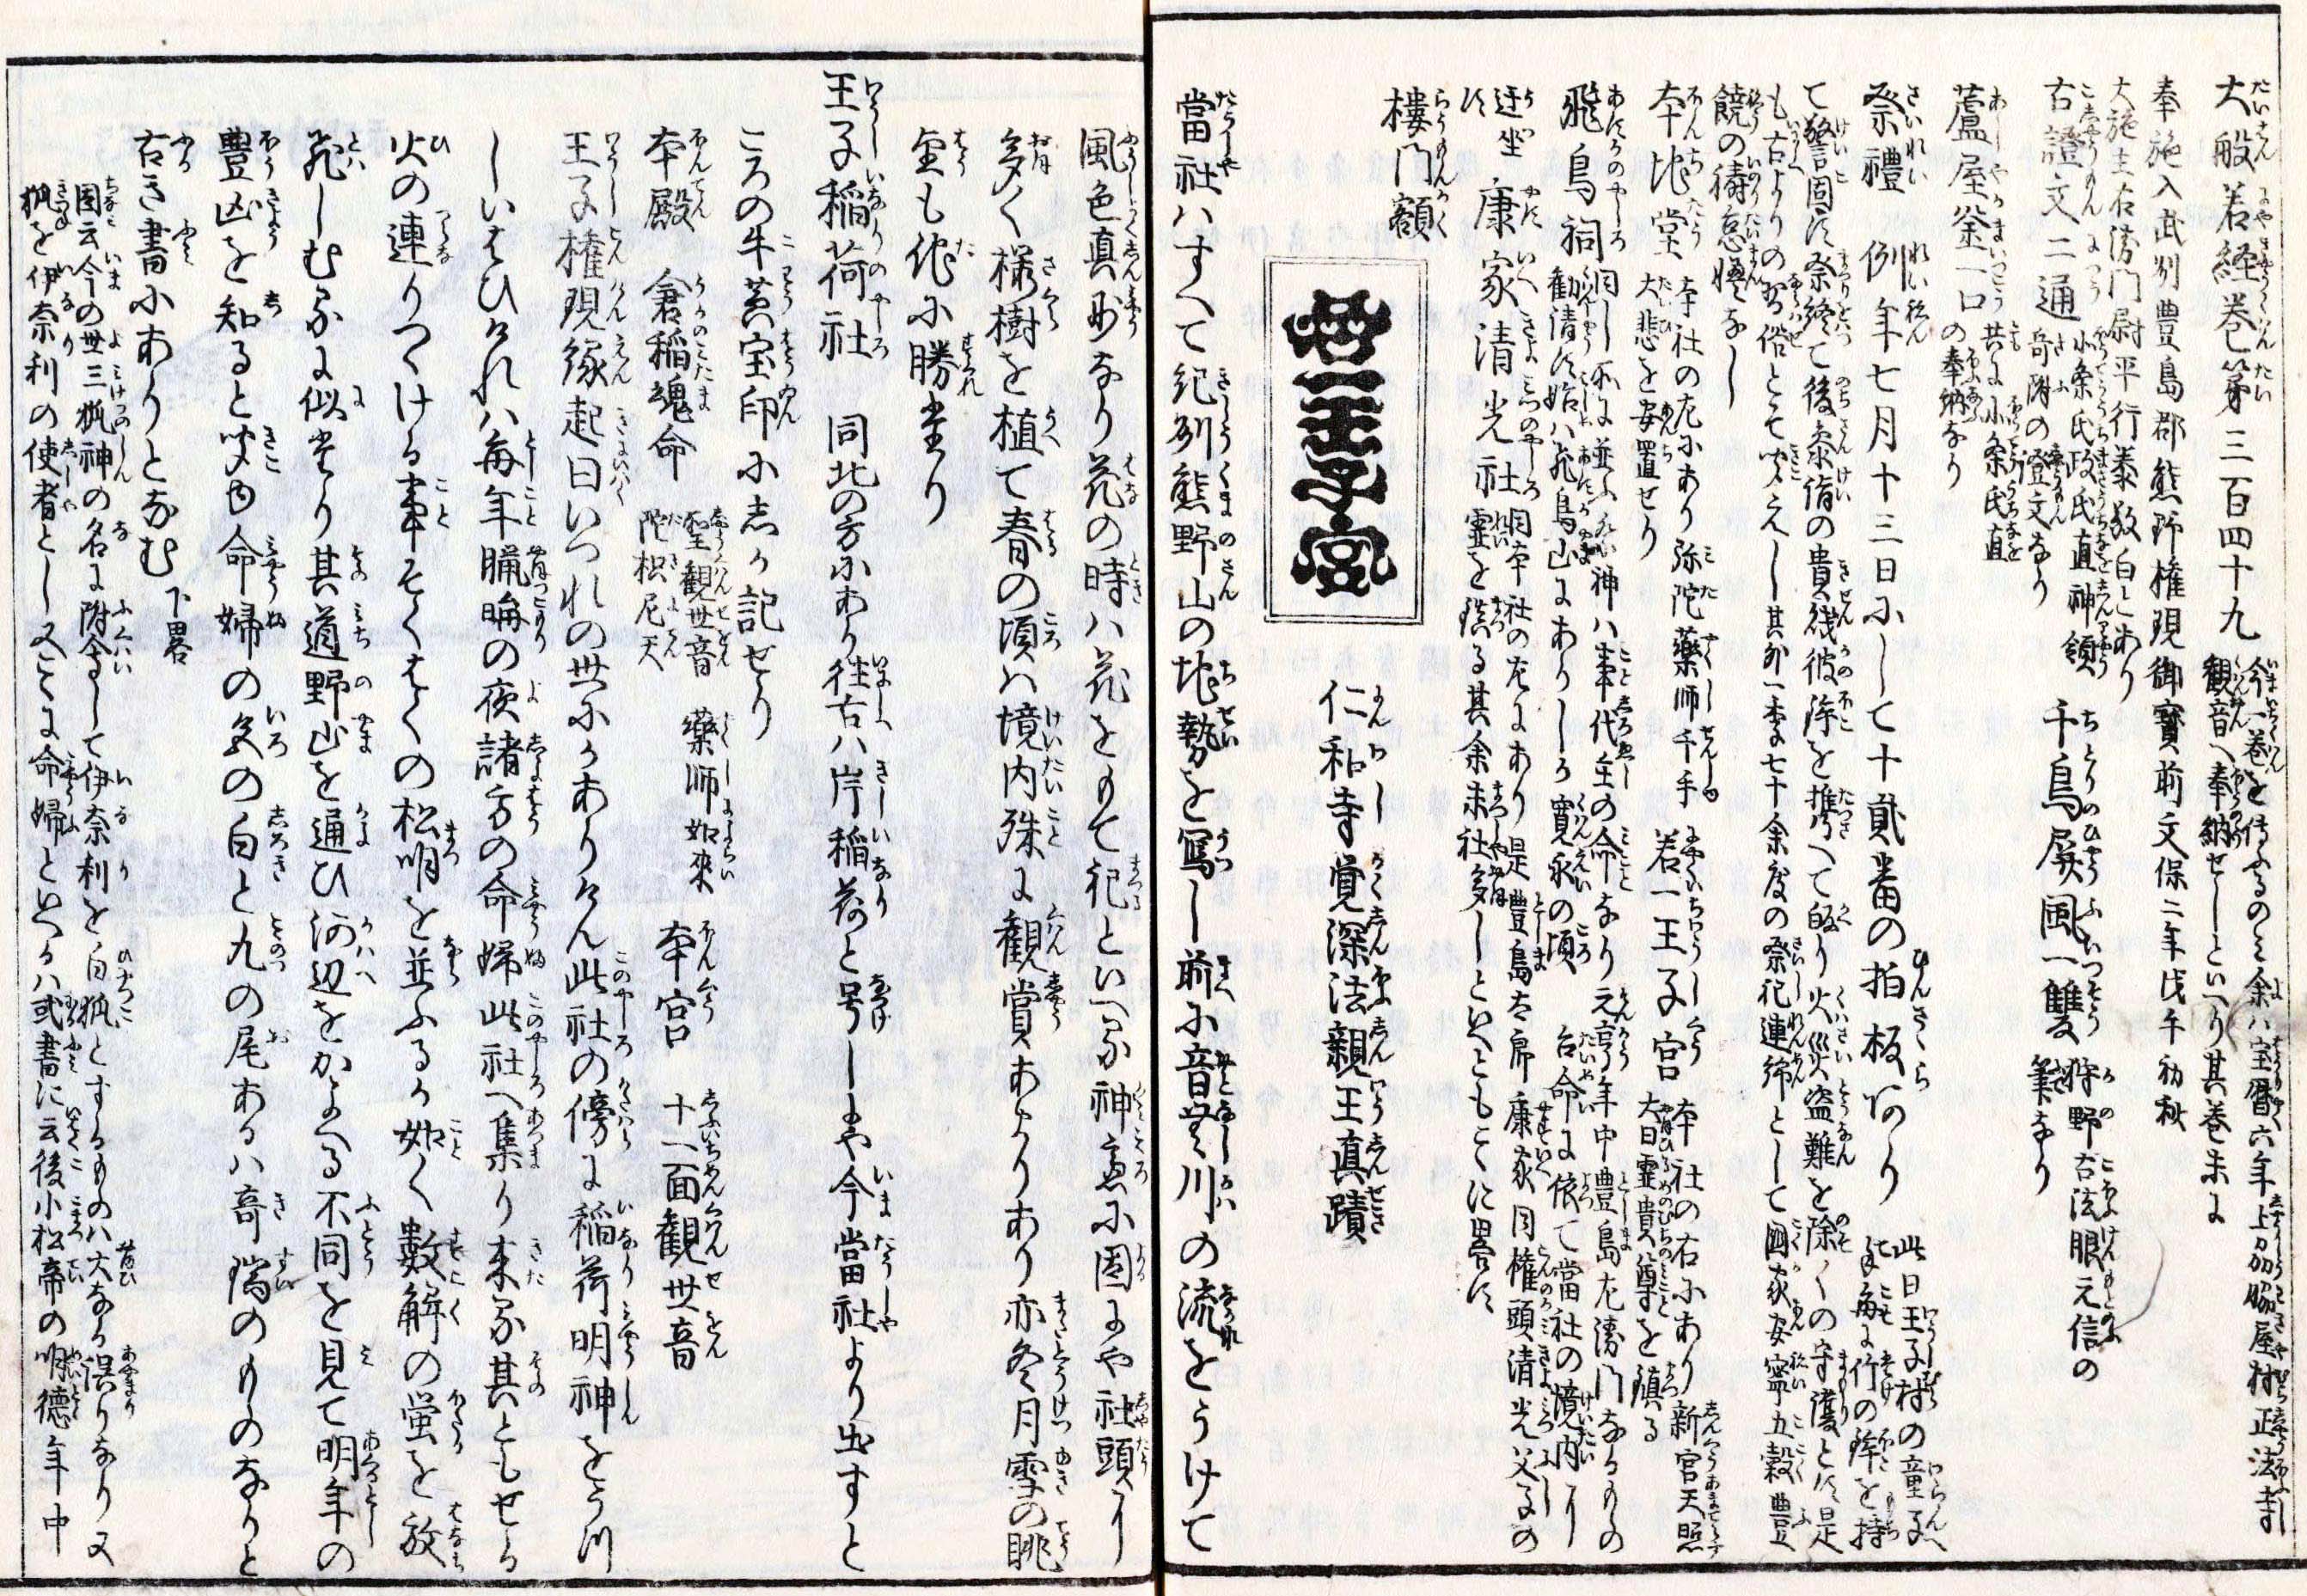 大般若経巻第三百四十九
今一巻を傳ふるのミ余ハ宝暦六年上刕脇屋村正法寺
観音へ奉納せしといへり其巻末に
奉施入武刕豊島郡熊野権現御寳前文保二年戊午初秋
大施主右衛門尉平行泰敬白とあり
古證文二通
小条氏政氏直神領
寄附の證文なり
千鳥屏風一雙
狩野古法眼元信の
筆なり
蘆屋釜一口
共に小条氏直
の奉納なり
祭禮 例年七月十三日にして十貮番の拍板あり
此日王子村の童子
警固に祭終て後参詣の貴賎彼鉾を携へて皈り火災盗難を除くの守護とす是
も古よりの習俗とそ聞えし其外一季七十余度の祭祀連綿として国家安寧五穀豊
饒の祷怠慢なし
本地堂
本社の左にあり弥陀薬師千手
大悲を安置せり
若一王子宮
本社の右にあり新宮天照
大日孁貴尊を鎮る
飛鳥祠
同し所に並ふ祭神ハ事代主の命なり元亨年中豊島左衛門なるものゝ
勧請す始ハ飛鳥山にありしか寛永の頃 台命に依て當社の境内に
迁坐す
康家清光社
同本社の左にあり是豊島太郎康家同権頭清光父子の
霊を祭る其余末社多しといへともこゝに畧す
樓門額
若一王子宮
仁和寺覚深法親王真蹟
當社ハすへて紀刕熊野山の地勢を寫し前に音無川の流をうけて
風色真妙なり花の時ハ花をもて祀といへる神意に因にや社頭に
多く桜樹を植て春の頃ハ境内殊に観賞あまりあり亦冬月雪の眺
望も他に勝れり
王子稲荷社 同北の方にあり往古ハ岸稲荷と号しにや今當社より出すと
ころの牛黄宝印にしか記せり
本殿 倉稲魂命
聖観世音 薬師如来
陀枳尼天
本宮 十一面観世音
王子権現縁起曰いつれの世にかありけん此社の傍に稲荷明神をうつ
しいはひけれハ毎年臘晦の夜諸方の命婦此社へ集り来る其ともせる
火の連りつゝける事そくはくの松明を並ふるか如く数斛の蛍を放
飛しむるに似たり其道野山を通ひ河辺をかよへる不同を見て明年の
豊凶を知ると聞ゆ命婦の色の白と九の尾あるハ奇瑞のものなりと
古き書にありとなむ 下畧
因云今の世三狐神の名に附会して伊奈利を白狐とするものハ大なる誤りなり又
狐を伊奈利の使者とし又こゝに命婦といへるハ或書に云後小松帝の明徳年中